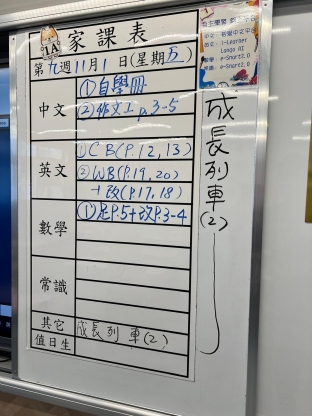 1A 家課表
第九週11月1日(星期五)
中文
①自學冊
②作文工 p.3-5
英文
①CB(P.12,13)
②WB(P.19,20)
+改(P.17,18)
數學
①足P.5+改P.3-4
常識
其它
成長列車(2)
值日生
成長列車(2)
自主學習
i-Learner
Lango AI
e-Smart2.0
e-Smart2.0